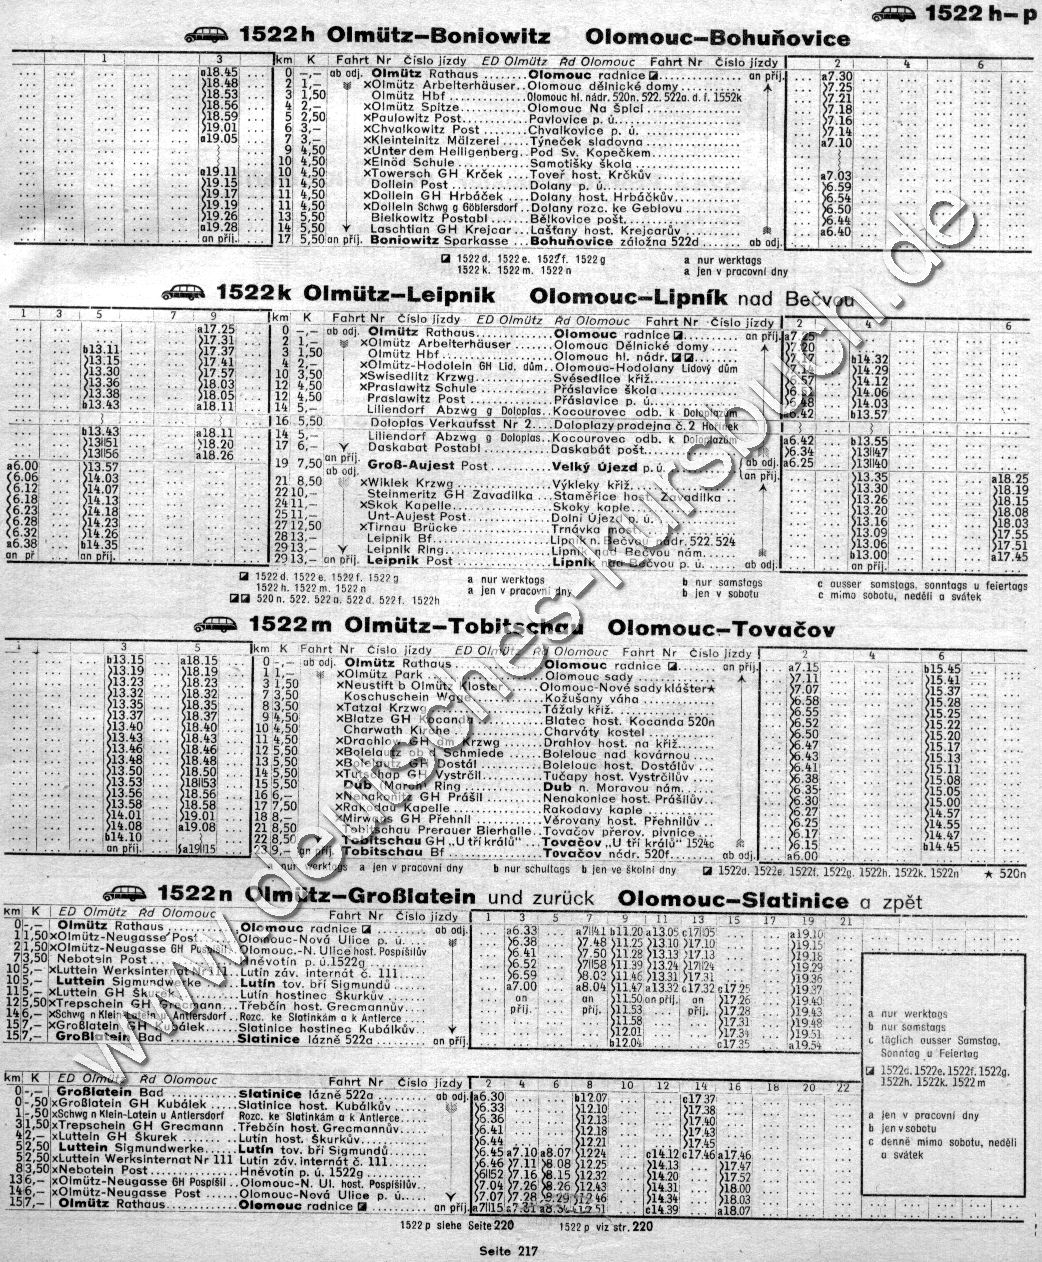 1522 h–p
1522 h Olmütz–Boniowitz Olomouc–Bohuňovice
1 3 km K Fahrt Nr Číslo jízdy ED Olmütz Rd Olomouc Fahrt Nr Číslo jízdy 2 4 6
a18.45 0 –,– ab odj. Olmütz Rathaus Olomouc radnice an příj. a7.30
18.48 2 1,– ×Olmütz Arbeiterhäuser Olomouc dělnické domy 7.25
18.53 3 1,50 Olmütz Hbf Olomouc hl. nádr. 520n. 522. 522a. d. f. 1552k 7.21
18.56 4 2,– ×Olmütz Spitze Olomouc Na Špici 7.18
18.59 5 2,50 ×Paulowitz Post Pavlovice p. ú. 7.16
19.01 6 3,– ×Chvalkowitz Post Chvalkovice p. ú. 7.14
a19.05 7 3,– ×Kleinteinitz Mälzerei Týneček sladovna a7.10
9 4,50 ×Unter dem Heiligenberg Pod Sv. Kopečkem
10 4,50 ×Elnöd Schule Samotišky škola
a19.11 10 4,50 ×Towersch GH Krček Toveř host. Krčkův a7.03
19.15 11 4,50 Dollein Post Dolany p. ú. 6.59
19.17 11 4,50 ×Dollein GH Hrbáček Dolany host. Hrbáčkův 6.54
19.19 11 4,50 ×Dollein Schwg g Göblersdorf Dolany rozc. ke Geblovu 6.50
19.26 13 5,50 Bielkowitz Postabl Bělkovice pošt. 6.44
a19.28 14 5,50 Laschtian GH Krejcar Lašťany host. Krejcarův a6.40
an příj. 17 5,50 an příj. Boniowitz Sparkasse Bohuňovice záložna 522d ab odj.
1522 d. 1522 e. 1522 f. 1522 g a nur werktags
1522 k. 1522 m. 1522 n a jen v pracovní dny
1522 k Olmütz–Leipnik Olomouc–Lipník nad Bečvou
1 3 5 7 9 km K Fahrt Nr Číslo jízdy ED Olmütz Rd Olomouc Fahrt Nr Číslo jízdy 2 4 6
a17.25 0 –,– ab odj. Olmütz Rathaus Olomouc radnice an příj. a7.25
17.31 2 1,– ×Olmütz Arbeiterhäuser Olomouc Dělnické domy 7.20
b13.11 17.37 3 1,50 Olmütz Hbf Olomouc hl. nádr. 7.17 b14.32
13.15 17.41 4 2,– ×Olmütz-Hodolein GH Lid. dům Olomouc-Hodolany Lidový dům 14.29
13.30 17.57 10 3,50 ×Swisedlitz Krzwg Svésedlice kříž. 6.57 14.12
13.36 18.03 12 4,50 ×Praslawitz Schule Přáslavice škola 14.06
13.38 18.05 12 4,50 Praslawitz Post Přáslavice p. ú. 6.48 14.03
b13.43 a18.11 14 5,– Liliendorf Abzwg g Doloplas Kocourovec odb. k Doloplazům a6.42 b13.57
16 5,50 Doloplas Verkaufsst Nr 2 Doloplazy prodejna č. 2 Hořínek
b13.43 a18.11 14 5,– Liliendorf Abzwg g Doloplas Kocourovec odb. k Doloplazům a6.42 b13.55
13||51 18.20 17 6,– Daskabat Postabl Daskabát pošt. 6.34 13||47
13||56 a18.26 19 7,50 an příj. ab odj. Groß-Aujest Post Velký Újezd p. ú. ab odj. an příj. a6.25 13||40
a6.00 13.57 13.35 a18.25
6.06 14.03 21 8,50 ×Wiklek Krzwg Výkleky kříž. 13.30 18.19
6.12 14.07 22 10,– Steinmeritz GH Zavadilka Staměřice host. Zavadilka 13.26 18.15
6.18 14.13 24 11,– ×Skok Kapelle Skoky kaple 13.20 18.08
6.23 14.18 25 11,– Unt-Aujest Post Dolní Újezd p. ú. 13.16 18.03
6.28 14.23 27 12,50 ×Tirnau Brücke Trnávka 13.09 17.55
6.32 14.26 28 13,– Leipnik Bf Lipník n. Bečvou nádr. 522. 524 13.06 17.51
a6.38 b14.35 29 13,– Leipnik Ring Lipník nad Bečvou nám. b13.00 a17.45
an př an příj. 29 13,– an příj. Leipnik Post Lipník nad Bečvou p. ú. ab odj. an příj.
1522 d. 1522 e. 1522 f. 1522 g a nur werktags b nur samstags c ausser samstags, sonntags u feiertags
1522 h. 1522 m. 1522 n a jen v pracovní dny b jen v sobotu c mimo sobotu, neděli a svátek
520 n. 522. 522 a. 522 d. 522 f. 1522h
1522 m Olmütz–Tobitschau Olomouc–Tovačov
1 3 5 km K Fahrt Nr Číslo jízdy ED Olmütz Rd Olomouc Fahrt Nr Číslo jízdy 2 4 6
b13.15 a18.15 0 –,– ab odj. Olmütz Rathaus Olomouc radnice an příj. a7.15 b15.45
13.19 18.19 1 1,– ×Olmütz Park Olomouc sady 7.11 15.41
13.23 18.23 3 1,50 ×Neustift b Olmütz Kloster Olomouc-Nové sady klášter★ 7.07 15.37
13.32 18.32 7 3,50 Koschuschein Kožušany váha 6.58 15.28
13.35 18.35 8 3,50 ×Tatzal Krzwg Tážaly kříž. 6.55 15.25
13.37 18.37 9 4,50 ×Blatze GH Kocanda Blatec host. Kocanda 520n 6.52 15.22
13.40 18.40 10 4,50 Charwath Kirche Charváty kostel 6.50 15.20
13.43 18.43 11 4,50 ×Drachlow GH am Krzwg Drahlov host. na kříž. 6.47 15.17
13.46 18.46 12 5,50 ×Bolelautz ob d Schmiede Bolelouc nad kovárnou 6.43 15.13
13.48 18.48 13 5,50 ×Bolelautz GH Dostál Bolelouc host. Dostálův 6.41 15.11
13.50 18.50 14 5,50 ×Tutschap GH Vystrčil Tučapy host. Vystrčilův 6.38 15.08
13.53 18||53 15 5,50 Dub March Ring Dub n. Moravou nám. 6.35 15.05
13.56 18.56 16 6,– ×Nenakonitz GH Prášil Nenakonice host. Prášilův 6.30 15.00
13.58 18.58 17 7,50 ×Rakodau Kapelle Rakodavy kaple 6.27 14.57
14.01 19.01 18 8,– ×Mirwies GH Přehnil Věrovany host. Přehnilův 6.25 14.55
14.08 a19.08 21 8,50 Tobitschau Prerauer Bierhalle Tovačov přerov. pivnice 6.17 14.47
b14.10 22 8,50 Tobitschau GH „U tří králů“ Tovačov „U tří králů“ 1524c 6.15 b14.45
an příj. a19||15 23 9,– an příj. Tobitschau Bf Tovačov nádr. 520f. ab odj. a6.00
a nur werktags a jen v pracovní dny b nur schultags b jen ve školní dny 1522d. 1522e. 1522f. 1522g. 1522h. 1522k. 1522n ★ 520n
1522 n Olmütz–Großlatein und zurück Olomouc–Slatinice a zpět
km K ED Olmütz Rd Olomouc Fahrt Nr Číslo jízdy 1 3 5 7 9 11 13 15 17 19 21
0 –,– Olmütz Rathaus Olomouc radnice ab odj. a6.33 a7||41 b11.20 a13.05 c17||05 a19.10
1 1,50 ×Olmütz-Neugasse Post Olomouc-Nová Ulice p. ú. 6.38 7.48 11.25 13.10 17.10 19.15
2 1,50 ×Olmütz-Neugasse GH Pospíšil Olomouc.-N. Ulice host. Pospíšilův 6.41 7.50 11.28 13.13 17.13 19.18
7 3,50 Nebotein Post Hněvotín p. ú. 1522g 6.52 7||58 11.39 13.24 17||24 19.29
10 5,– ×Luttein Werksinternat Nr 111 Lutín záv. internát č. 111 6.59 8.03 11.46 13.31 17.31 19.36
10 5,– Luttein Sigmundwerke Lutín tov. bří Sigmundů a7.00 a8.04 11.47 a13.32 c17.32 c17.25 19.37
11 5,– ×Luttein GH Škurek Lutín hostinec Škurkův an an 11.50 an příj. an 17.26 19.40
12 5,50 ×Trepschein GH Grecmann Třebčín host. Grecmannův příj. příj. 11.53 příj. 17.28 19.43
14 6,– ×Schwg n Klein-Latein u Antlersdorf Rozc. ke Slatinkám a k Antlerce 11.58 17.31 19.48
15 7,– ×Großlatein GH Kubálek Slatinice hostinec Kubálkův 12.01 17.34 19.51
15 7,– Großlatein Bad Slatinice lázně 522a an příj. b12.04 c17.35 a19.54
a nur werktags
b nur samstags
c täglich ausser Samstag, Sonntag u Feiertag
1522d. 1522e. 1522f. 1522g. 1522h. 1522k. 1522 m
a jen v pracovní dny
b jen v sobotu
c denně mimo sobotu, neděli a svátek
km K ED Olmütz Rd Olomouc Fahrt Nr Číslo jízdy 2 4 6 8 10 12 14 16 18 20 22
0 –,– Großlatein Bad Slatinice lázně 522a ab odj. a6.30 b12.07 c17.37
0 –,50 ×Großlatein GH Kubálek Slatinice host. Kubálkův 6.33 12.10 17.38
1 –,50 ×Schwg n Klein-Latein u Antlersdorf Rozc. ke Slatinkám a k Antlerce 6.36 12.13 17.40
3 1,50 ×Trepschein GH Grecmann Třebčín host. Grecmannův 6.41 12.18 17.43
4 2,– ×Luttein GH Škurek Lutín host. Škurkův 6.44 12.21 17.45
5 2,50 Luttein Sigmundwerke Lutín tov. bří Sigmundů 6.45 a7.10 a8.07 12.24 c14.12 c17.46 a17.46
5 2,50 ×Luttein Werksinternat Nr 111 Lutín záv. internát č. 111 6.46 7.11 8.08 12.25 14.13 17.47
8 3,50 ×Nebotein Post Hněvotín p. ú. 1522g 6||52 7.16 8.15 12.32 14.20 17.52
13 6,– ×Olmütz-Neugasse GH Pospíšil Olomouc-N. Ul. host. Pospíšilův 7.04 7.26 8.26 12.43 14.31 18.00
14 6,– ×Olmütz-Neugasse Post Olomouc-Nová Ulice p. ú. 7.07 7.28 8.29 12.46 14.34 18.03
15 7,– Olmütz Rathaus Olomouc radnice an příj. a7||15 a7.31 a8.34 b12.51 c14.39 a18.07
1522 p siehe Seite 220 1522 p viz str. 220
Seite 217
www.deutsches-kursbuch.de